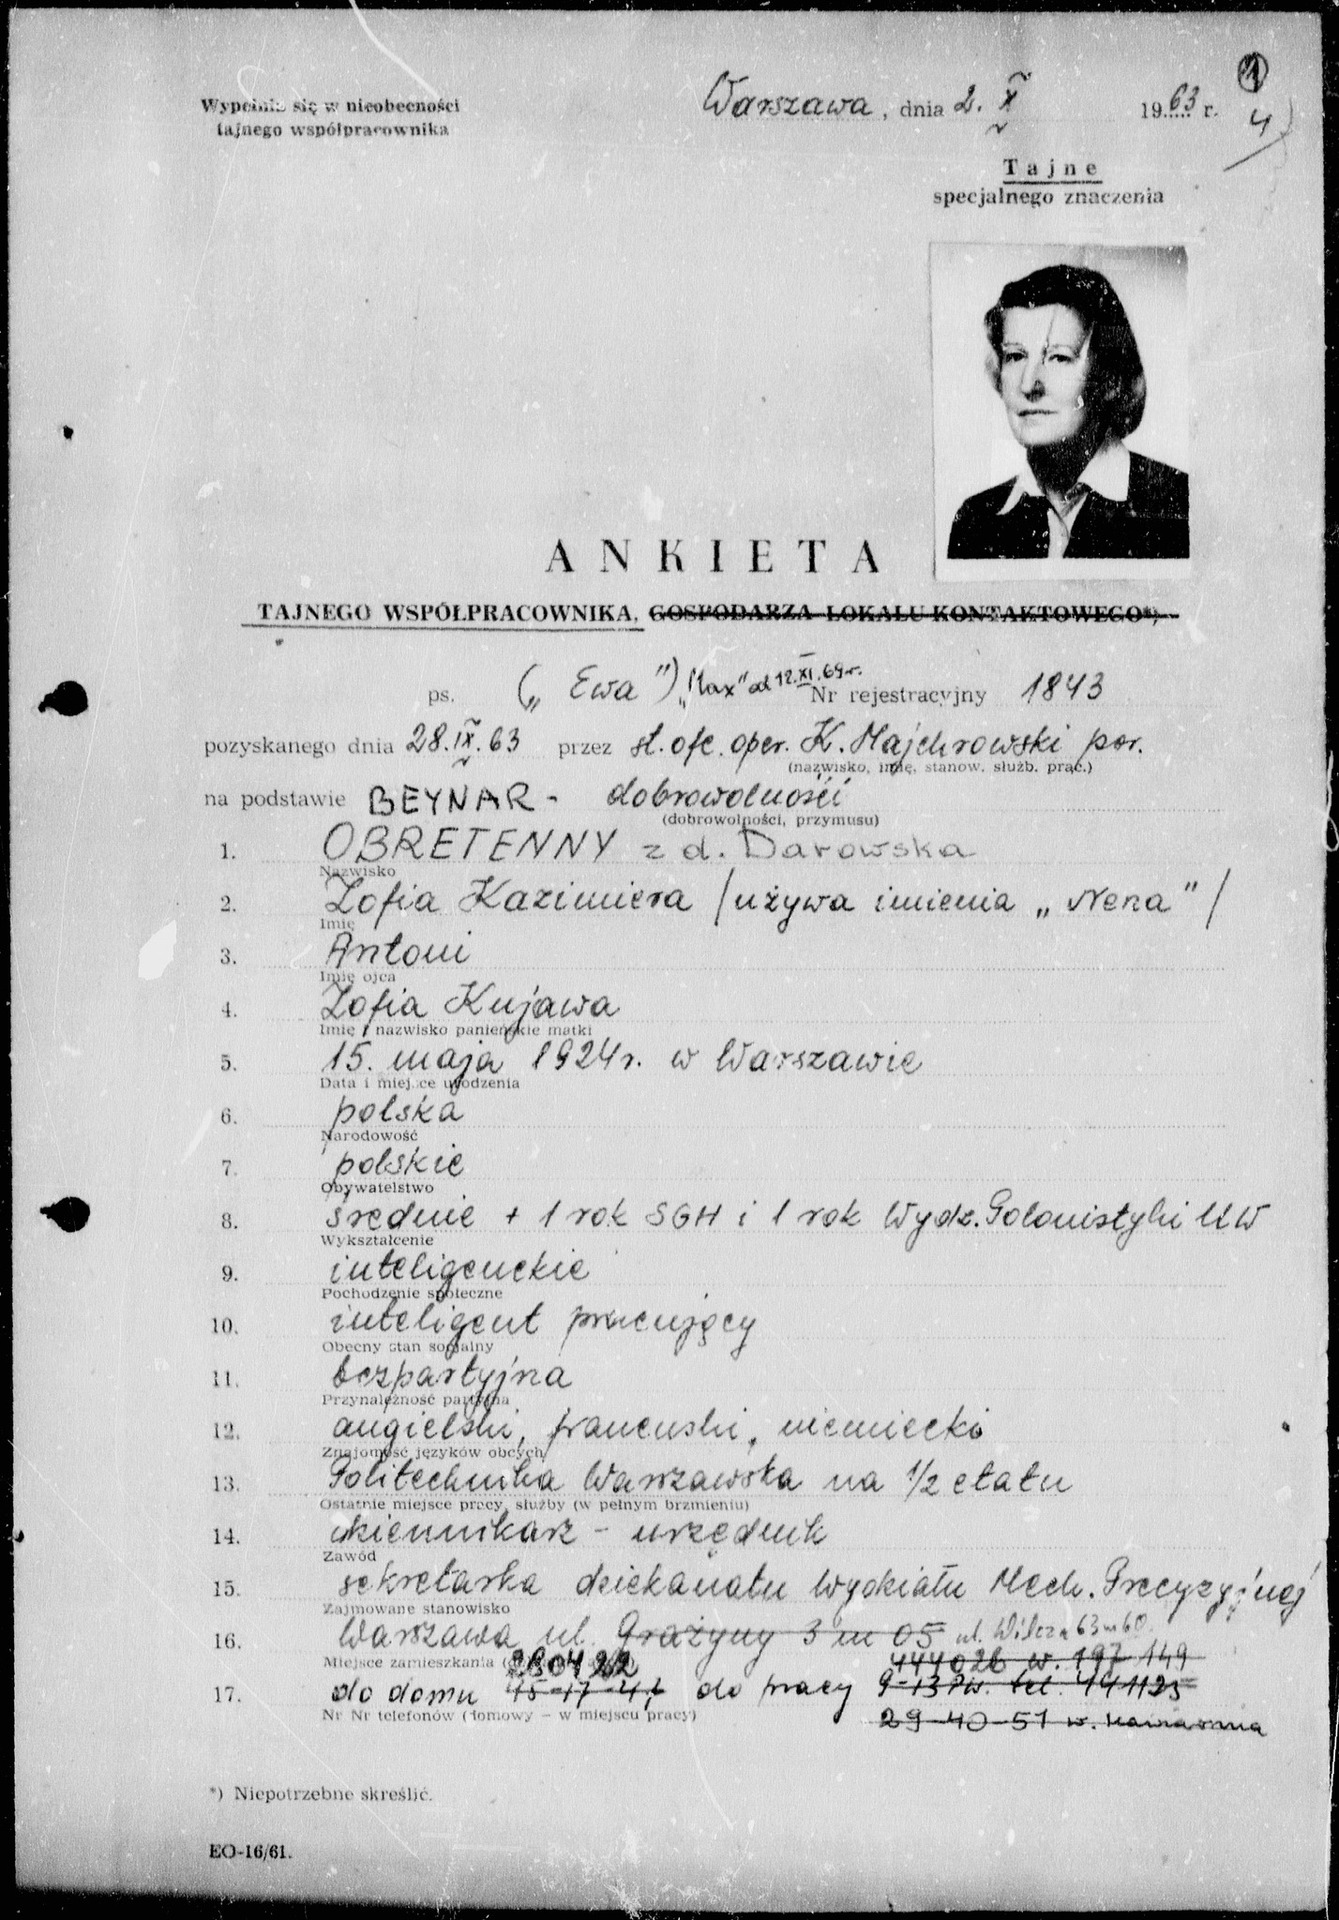 1
4
Wypełnia się w nieobecności
tajnego współpracownika
Warszawa, dnia 2. X 1963 r.
Tajne
specjalnego znaczenia
ANKIETA
TAJNEGO WSPÓŁPRACOWNIKA, GOSPODARZA LOKALU KONTAKTOWEGO*)
ps. („Ewa”) „Max” od 12.XI.69 r. Nr rejestracyjny 1843
pozyskanego dnia 28.IX.63 przez st. ofc. oper. K. Majchrowski por.
(nazwisko, imię, stanow. służb. prac.)
na podstawie BEYNAR - dobrowolności
(dobrowolności, przymusu)
1. OBRETENNY z d. Darowska
Nazwisko
2. Zofia Kazimiera /używa imienia „Nena”/
Imię
3. Antoni
Imię ojca
4. Zofia Kujawa
Imię i nazwisko panieńskie matki
5. 15. maja 1924 r. w Warszawie
Data i miejsce urodzenia
6. polska
Narodowość
7. polskie
Obywatelstwo
8. średnie + 1 rok SGH i 1 rok Wydz. Polonistyki UW
Wykształcenie
9. inteligenckie
Pochodzenie społeczne
10. inteligent pracujący
Obecny stan socjalny
11. bezpartyjna
Przynależność partyjna
12. angielski, francuski, niemiecki
Znajomość języków obcych
13. Politechnika Warszawska na 1/2 etatu
Ostatnie miejsce pracy, służby (w pełnym brzmieniu)
14. dziennikarz - urzędnik
Zawód
15. sekretarka dziekanatu Wydziału Mech. Precyzyjnej
Zajmowane stanowisko
16. Warszawa ul. Grażyny 3 m 05 ul. Wilcza 63 m 60
Miejsce zamieszkania
280422 444026 w. 197 149
17. do domu 45-17-41 do pracy 9-13 Piv. tel.
Nr Nr telefonów (domowy - w miejscu pracy)
29-40-51 w.
*) Niepotrzebne skreślić.
EO-16/61.